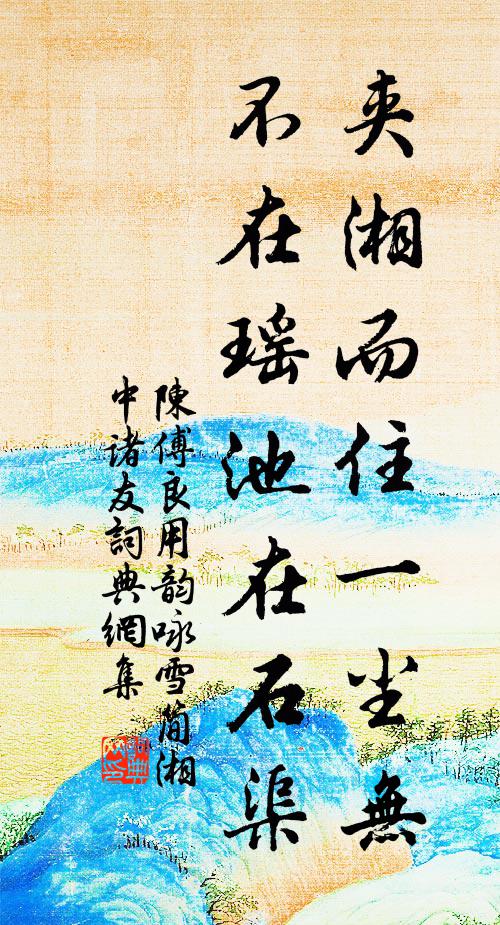 夹湘而住一尘無
不在瑶池在石渠
陳傅良用韵咏雪简湘
中诸友詞典網集